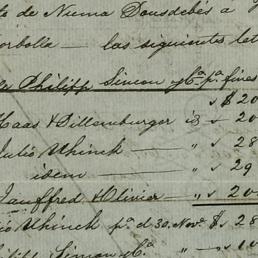 to de Numa Dousdebés a
orbolla — las siguientes let
Philipp Simon y Cª pª fines
" $ 20
Haas & Dillenburger id " 20
Julio Uhinck — " 28
idem — " 29
Jauffred & Olivier — " 20
io Uhinck pª d 30. Novº $ 28
Philipp Simon y Cª " 10